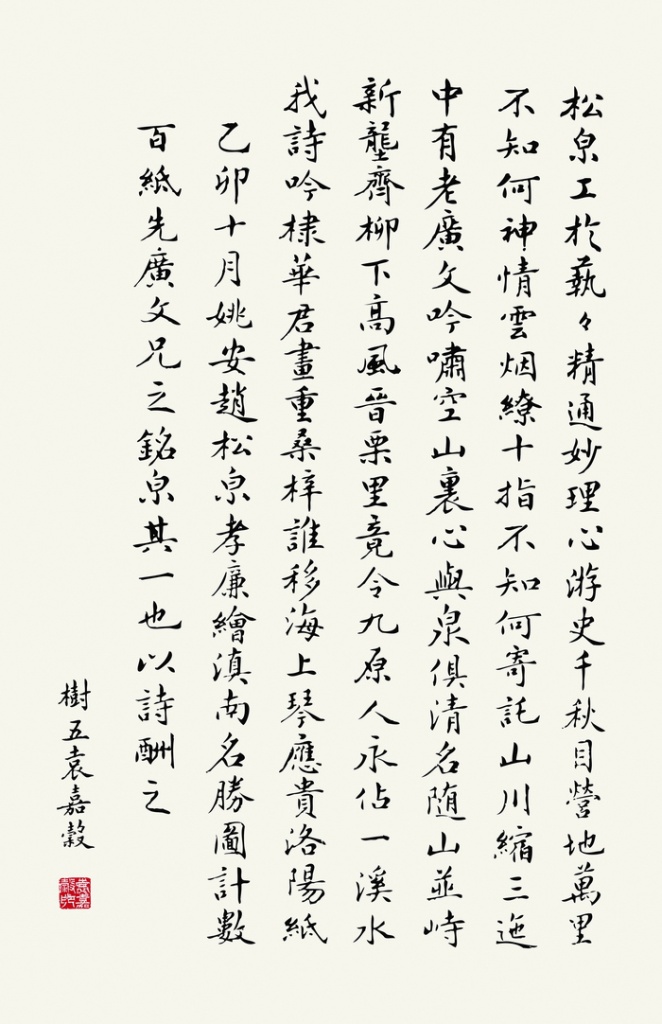 松泉工於藝々精通妙理心游史千秋目營地萬里
不知何神情雲烟繚十指不知何寄託山川縮三迤
中有老廣文吟嘯空山裏心與泉俱清名随山並峙
新壟齊柳下高風晉栗里竟令九原人永佔一溪水
我詩吟棣華君畫重桑梓誰移海上琴應貴洛陽紙
乙卯十月姚安趙松泉孝廉繪滇南名勝圖計數
百紙先廣文兄之銘泉其一也以詩酬之
樹五袁嘉穀